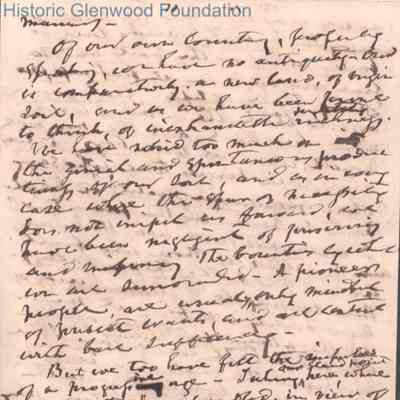 Historic Glenwood Foundation
manner,
Of our own country, properly
speaking, we have no antiquity - And
is comparatively a new land, of virgin
soil, and as we have been prone
to think, of inexhaustible richness.
We have relied too much on
the rich and spontaneous produc
tions of our soil and as in any
case where the spur of necessity
does not impel us forward, we
have been negligent of preserving
and the bounties by which
we are surrounded - A pioneer
people, are usually only mindful
of present wants, and are content
with bare sufficiency -
But we too have felt the impulse
of a progressive age - Taking our stand here where
in view of